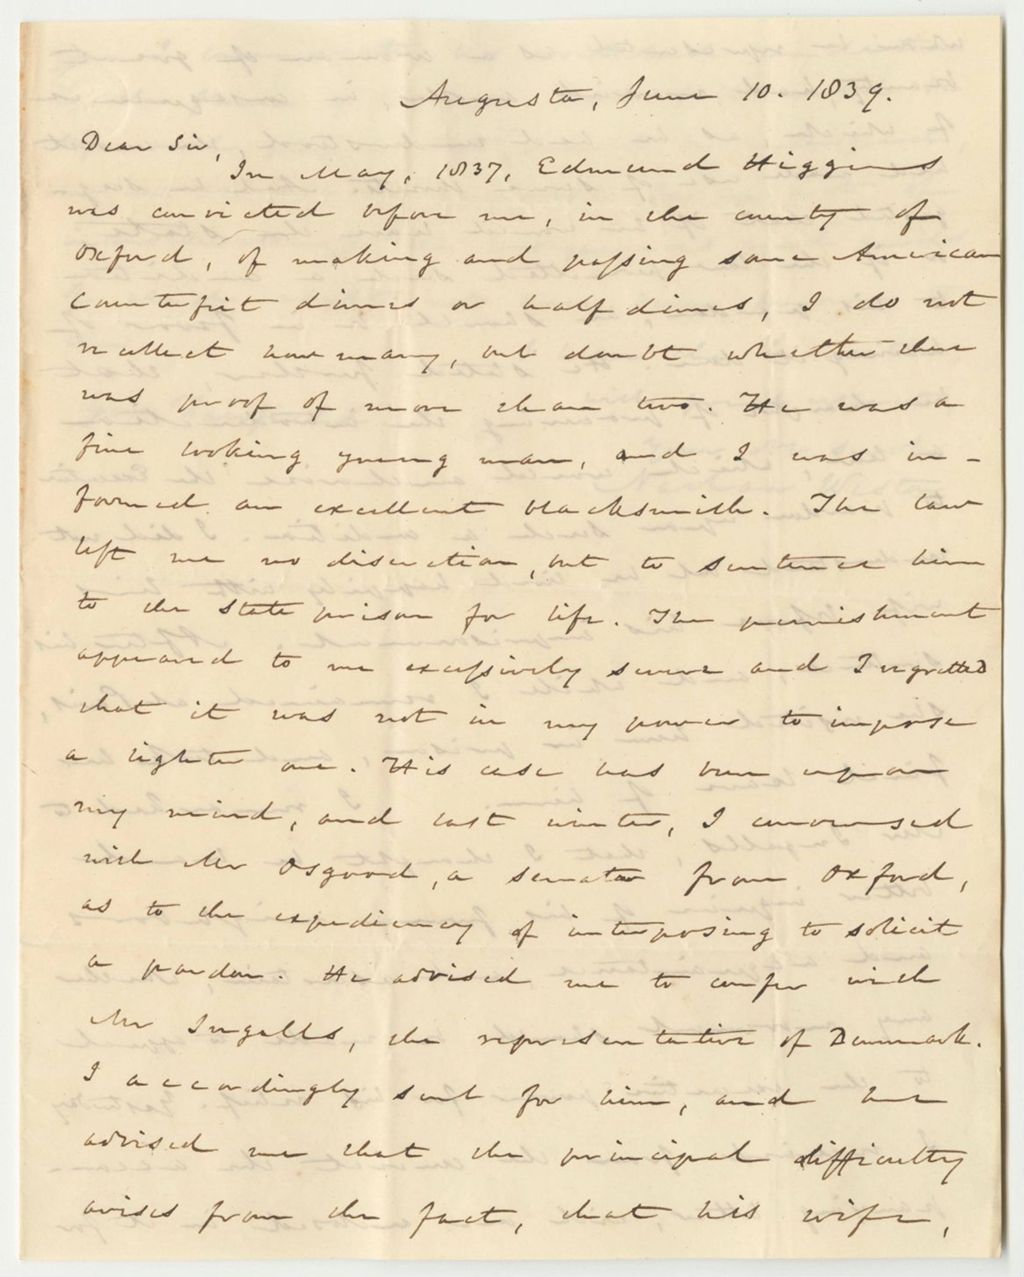 Augusta, June 10. 1839.
Dear Sir,
In May, 1837, Edmund Higgins
was convicted before me, in the county of
Oxford, of making and passing some American
counterfeit dimes or half dimes, I do not
recollect how many, but doubt whether there
was proof of more than two. He was a
fine looking young man, and I was in-
formed an excellent blacksmith. The law
left me no discretion, but to sentence him
to the state prison for life. The punishment
appeared to me excessively severe and I regretted
that it was not in my power to impose
a lighter one. His case has been upon
my mind, and last winter, I conversed
with Mr Osgood, a senator from Oxford,
as to the expediency of interposing to solicit
a pardon. He advised me to confer with
Mr Ingalls, the representative of Denmark.
I accordingly sent for him, and he
advised me that the principal difficulty
arises from the fact, that his wife,